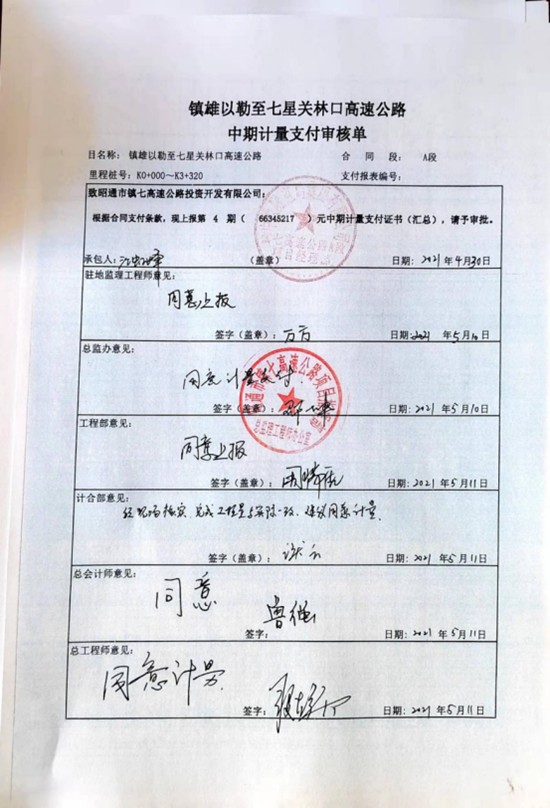 镇雄以勒至七星关林口高速公路
中期计量支付审核单
目名称： 镇雄以勒至七星关林口高速公路 合 同 段： A段
里程桩号：K0+000～K3+320 支付报表编号：
致昭通市镇七高速公路投资开发有限公司：
根据合同支付条款，现上报第 4 期（ 66345217 ）元中期计量支付证书（汇总），请予审批。
承包人： （盖章） 日期：2021年4月30日
驻地监理工程师意见：
同意上报
签字（盖章）：万方 日期：2021年5月10
总监办意见：
同意计量支付.
签字（盖章）： 日期：2021年5月10日
工程部意见：
同意上报
签字（盖章）： 日期：2021年5月11日
计合部意见：
经现场核实，完成工程量与实际一致，建议同意计量.
签字（盖章）： 日期：2021年5月11日
总会计师意见：
同意
签字： 日期：2021年5月11日
总工程师意见：
同意计量
签字： 日期：2021年5月11日